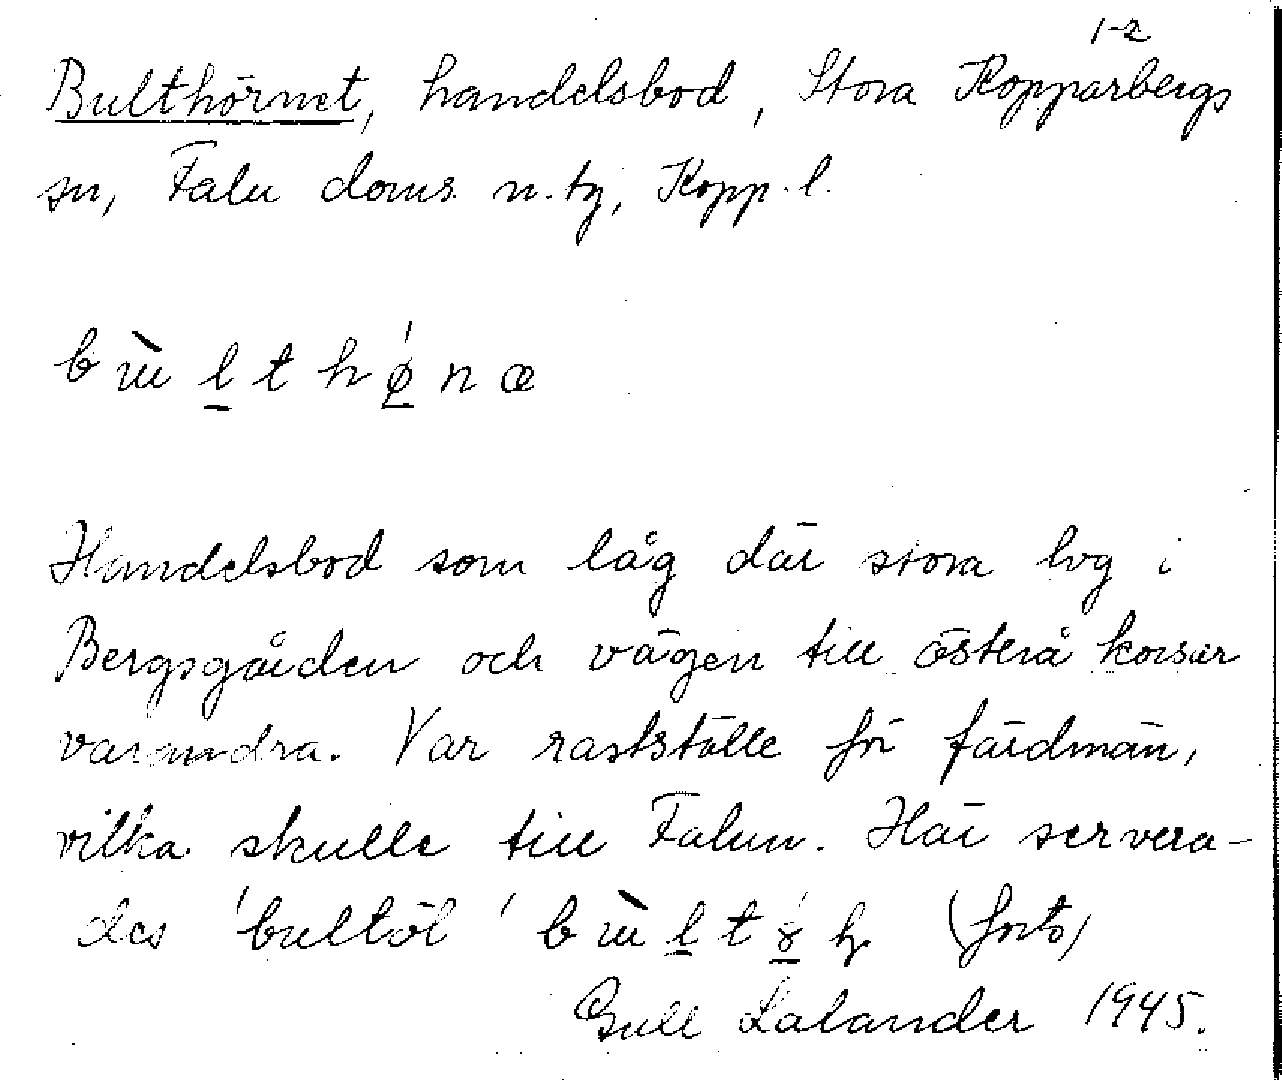 1-2
Bulthörnet, handelsbod, Stora Kopparbergs
sn, Falu doms. n. tg, Kopp. l.
Handelsbod som låg där stora lvg i
Bergsgården och vägen till österå korsar
varandra. Var rastställe för färdmän,
vilka skulle till Falun. Här servera-
des 'bultöl' (forts)
Gull Lalander 1945.